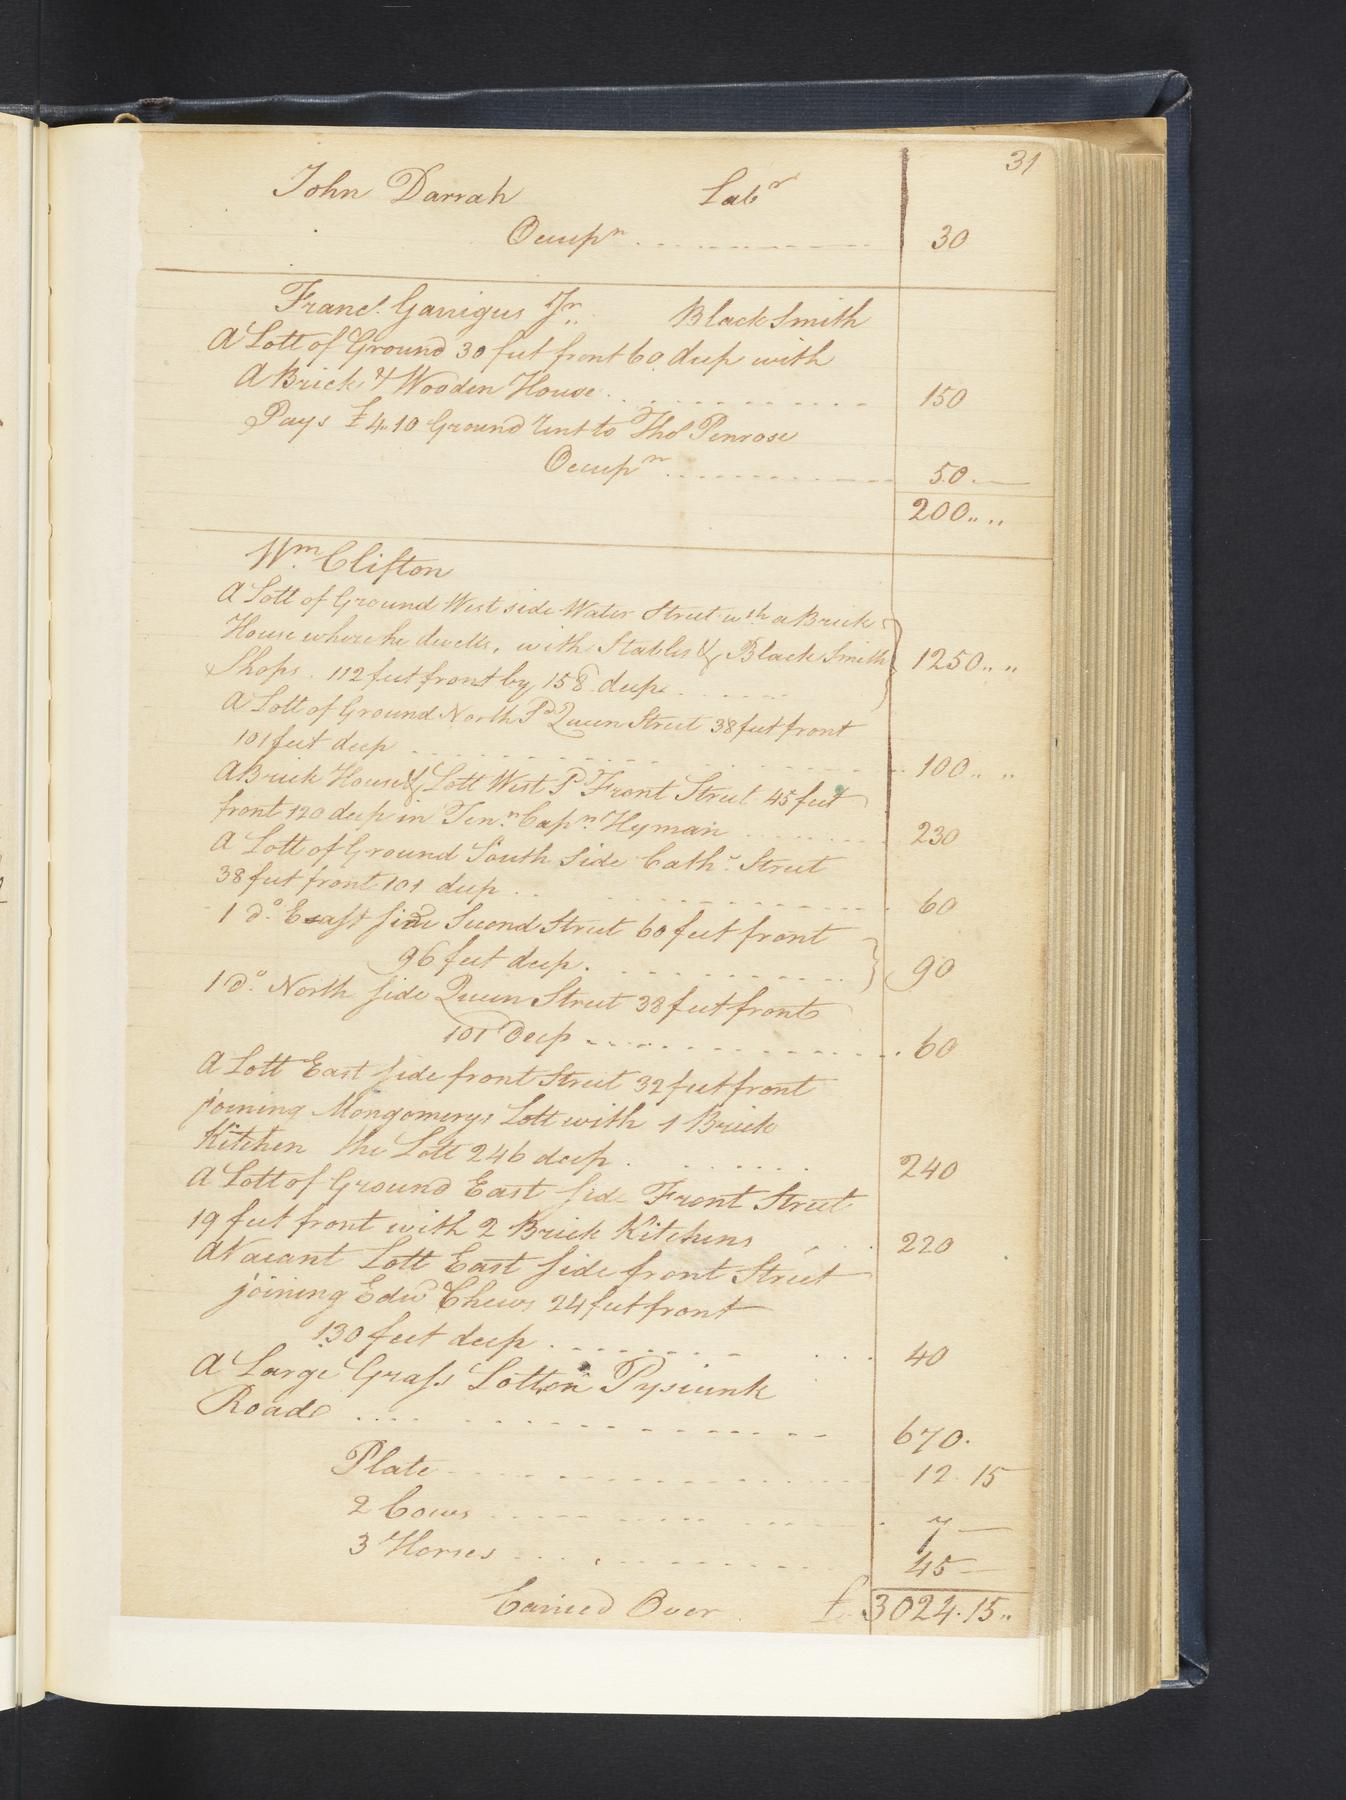 31
John Darrah Labr
Occupn 30
Franc. Garrigus Jr. Black Smith
A Lott of Ground 30 feet front 60 deep with
A Brick & Wooden House 150
Pays £4.10 Ground Rent to Tho Penrose
Occupn 50.—
200.. ..
Wm Clifton
A Lott of Ground West side Water Street wth a Brick
House where he dwells, with Stables & Black Smith 1250.. ..
Shops. 112 feet front by 158 deep
A Lott of Ground North Sd Queen Street 38 feet front
101 feet deep 100.. ..
A Brick House & Lott West Sd Front Street 45 feet
front 120 deep in Tenn. Capn. Hyman 230
A Lott of Ground South Side Cath. Street
38 feet front 101 deep 60
1 do. East side Second Street 60 feet front
96 feet deep. 90
1 do. North side Queen Street 38 feet front
101 Deep 60
A Lott East side front Street 32 feet front
joining Mongomerys Lott with 1 Brick
Kitchen the Lott 246 deep. 240
A Lott of Ground East side Front Street
19 feet front with 2 Brick Kitchens 220
A Vacant Lott East side front Street
joining Edwd Chews 24 feet front
130 feet deep 40
A Large Grass Lott on Pysiunk
Roade 670.
Plate 12.15
2 Cows 7—
3 Horses 45—
Carried Over £ 3024.15..